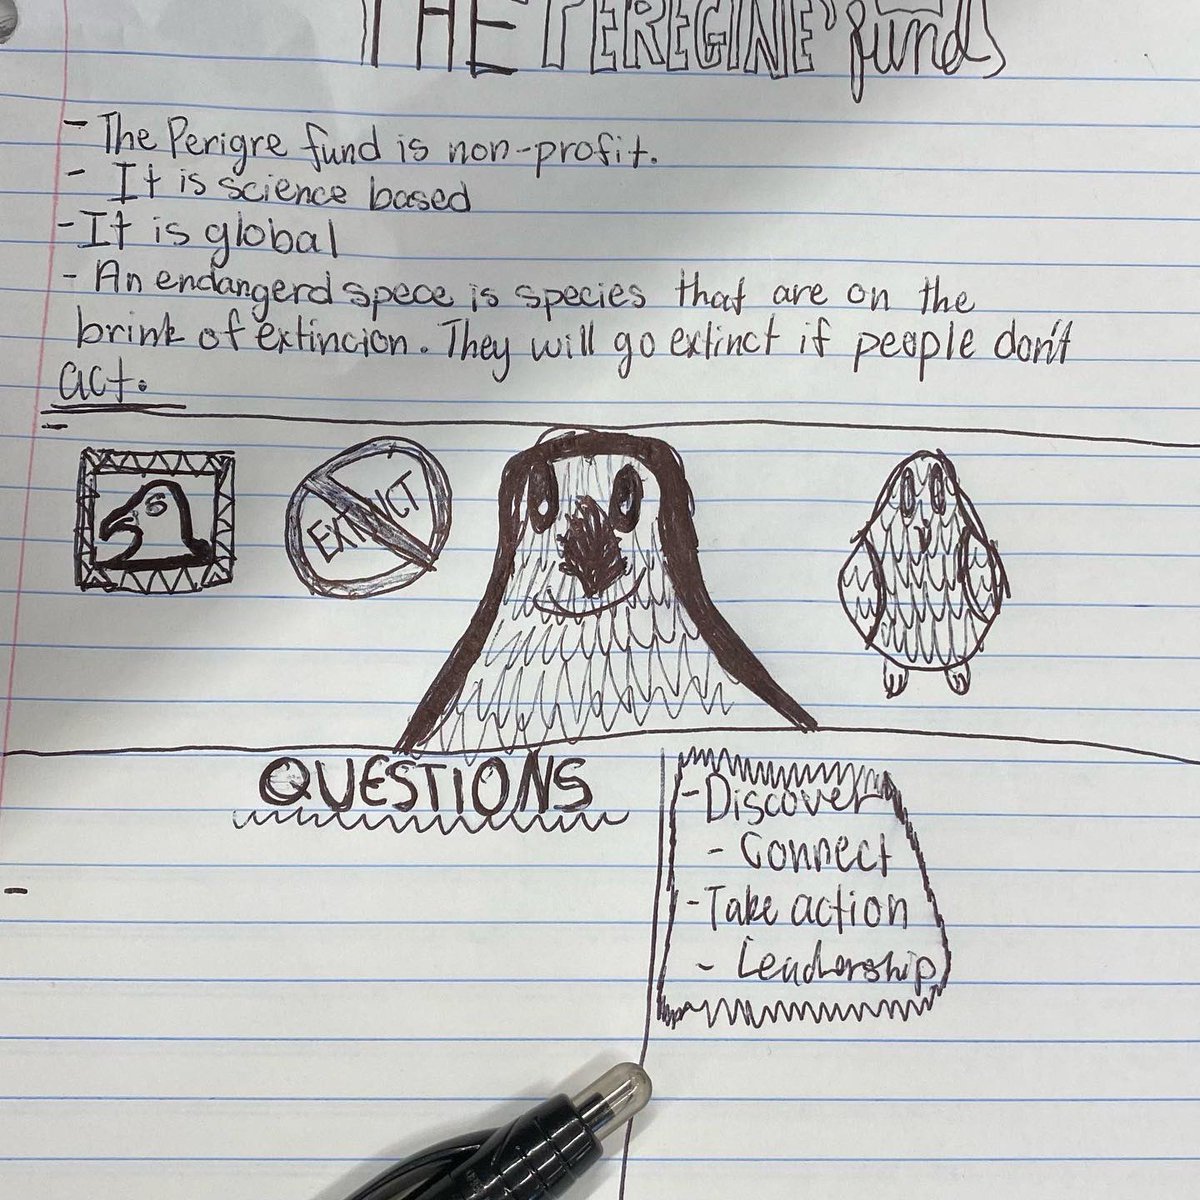 THE PEREGINE fund
- The Perigre fund is non-profit.
- It is science based
- It is global
- An endangerd spece is species that are on the
brink of extincion. They will go extinct if people don't
act.
EXTINCT
QUESTIONS
- Discover
- Connect
- Take action
- Leadership